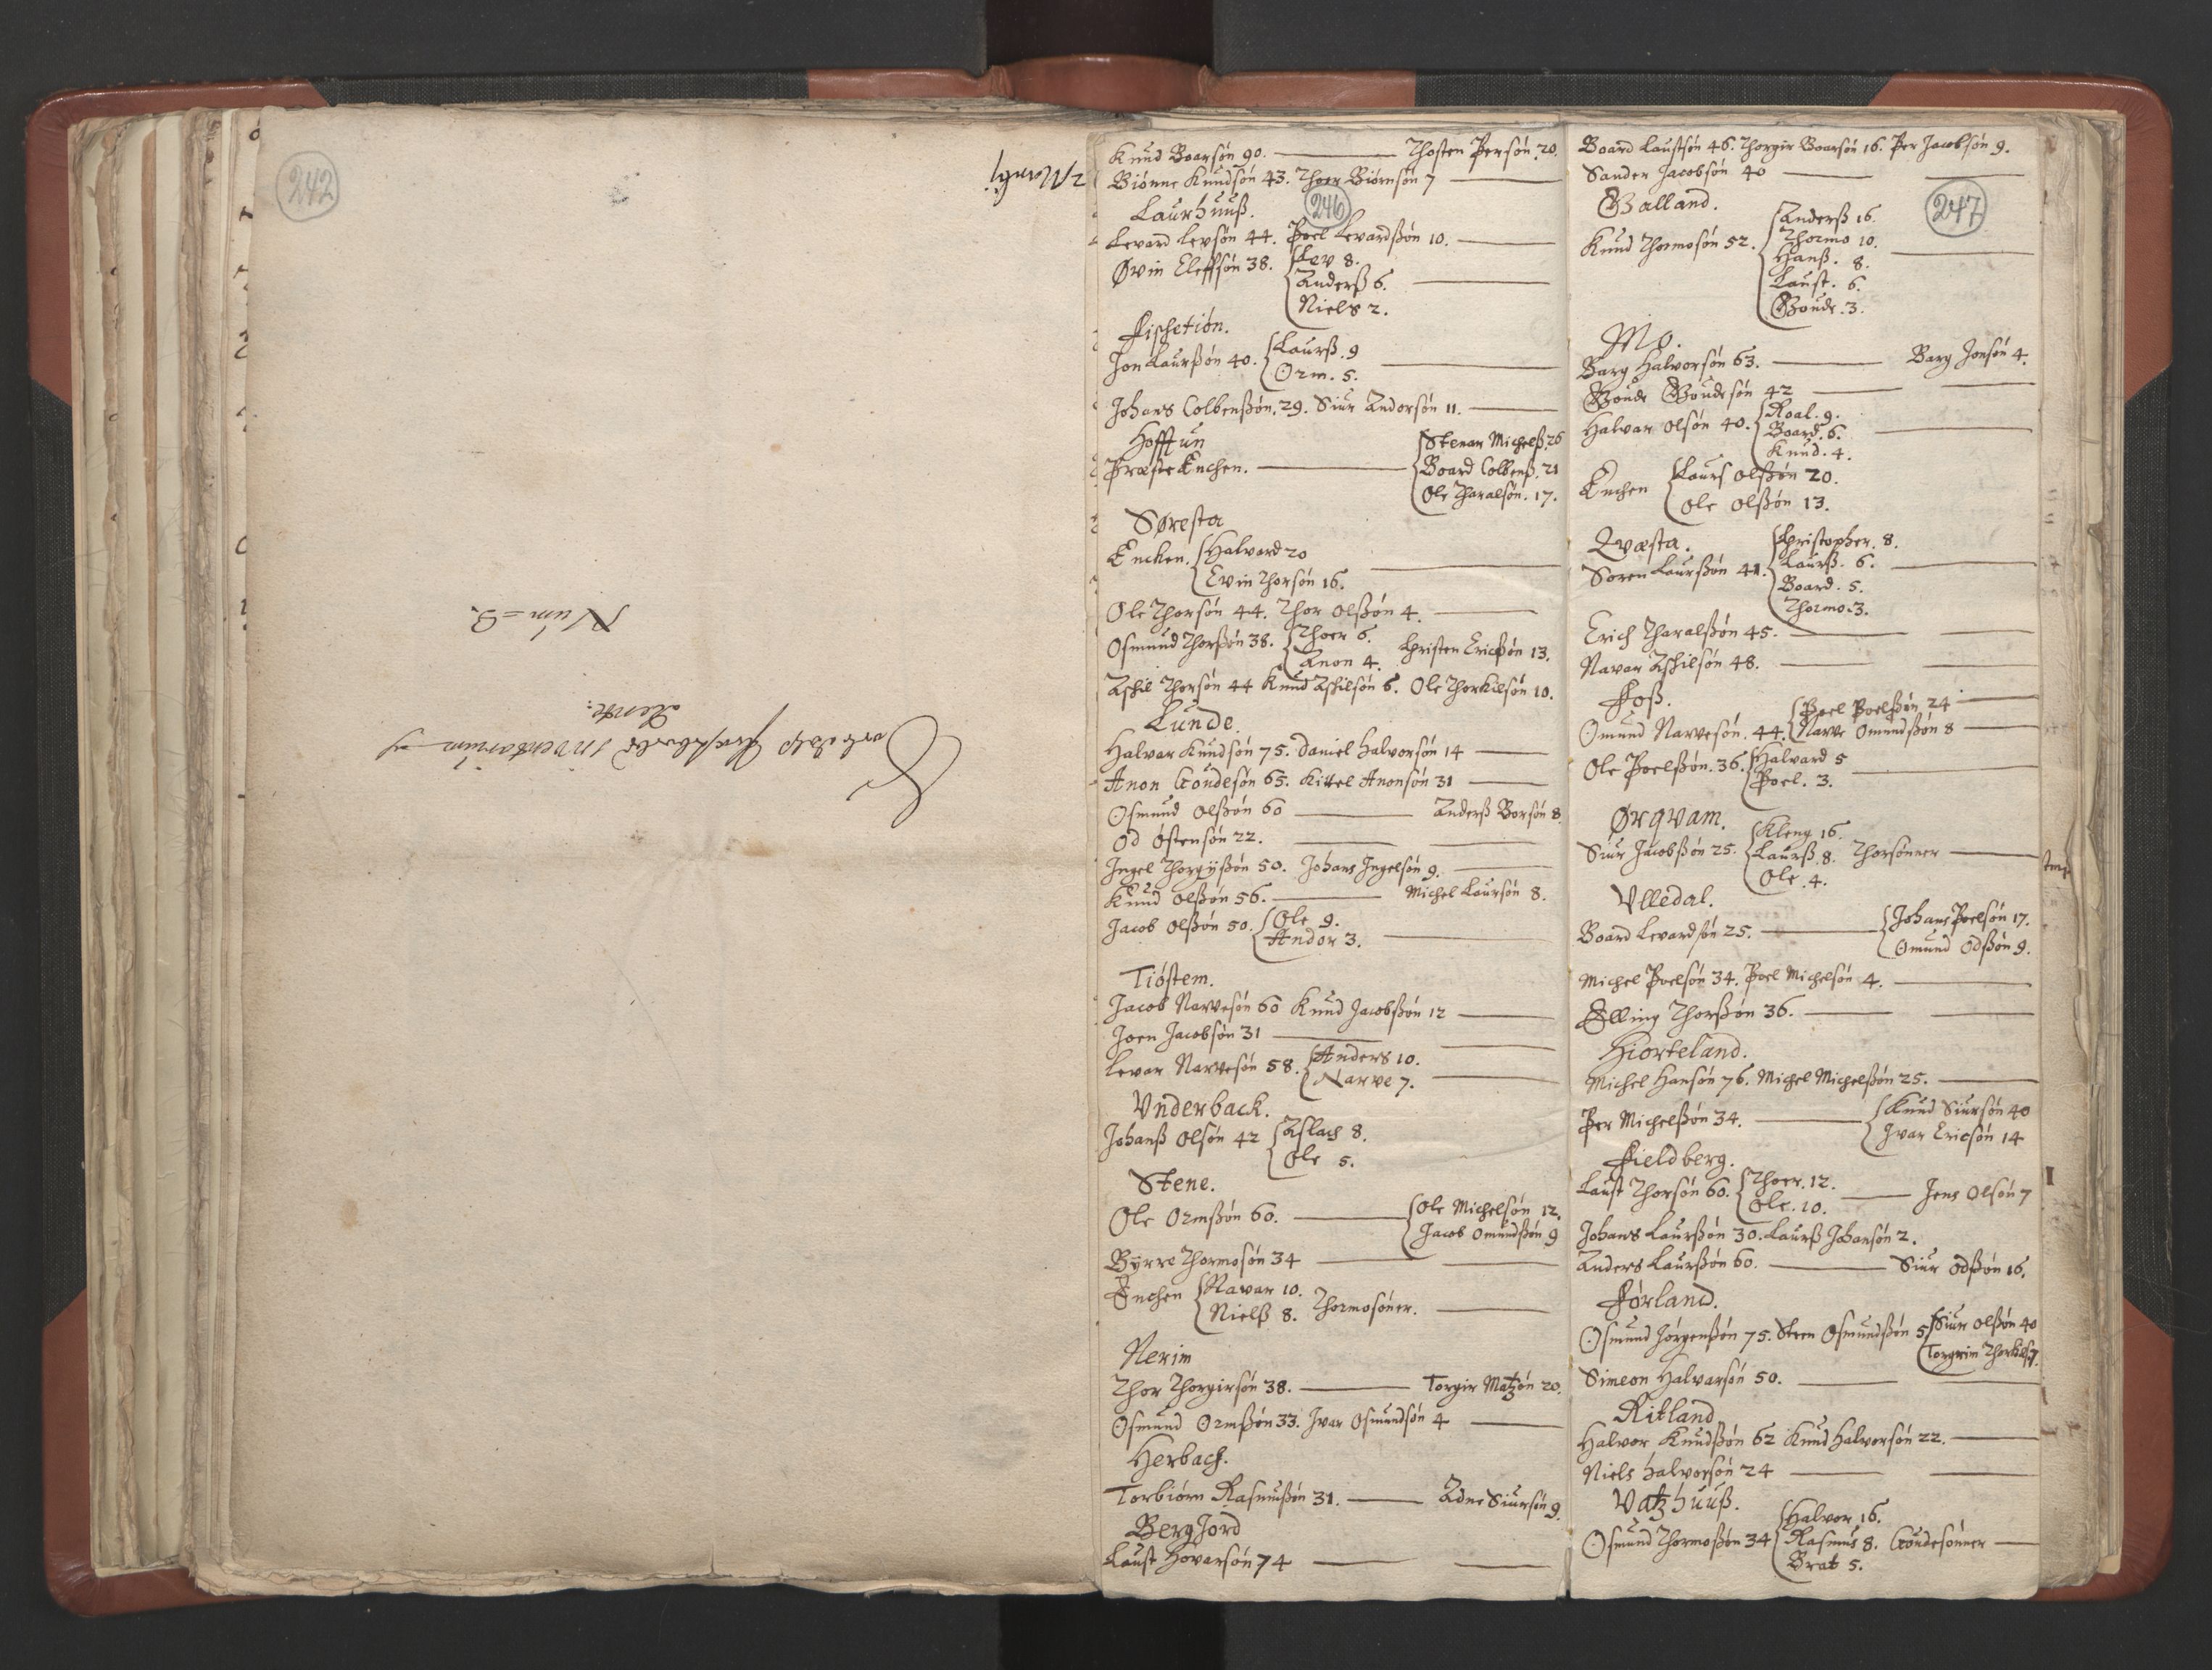 242
Num=3.
inventarium
246
Knud Boarsøn 90. Thosten Persøn 20.
Biønne Knudsøn 43. Thoer Biørnsøn 7
Laurhuuß.
Levard Levsøn 44. Poel Levardßøn 10.
Øvin Eleffsøn 38. Lev 8.
Anderß 6.
Niels 2.
Fischetiøn.
Jon Laurßøn 40. Laurß. 9
Orm. 5.
Johans Colbenßøn. 29. Siur Andorsøn 11.
Hofftun
Præste Enchen. Stenar Michelß. 26
Board Colbenß. 21
Ole Tharalsøn. 17.
Søresta
Encken. Halvord 20
Evin Thorsøn 16.
Ole Thorsøn 44. Thor Olßøn 4.
Osmund Thorßøn 38. Thoer 6.
Anon 4. Christen Ericßøn 13.
Aschil Thorsøn 44 Knud Aschilsøn 6. Ole Thorkilsøn 10.
Lunde.
Halvar Knudsøn 75. Daniel Halvorsøn 14
Anon Goudesøn 65. Kittel Anonsøn 31
Osmund Olßøn 60 Anderß Borsøn 8.
Od Østensøn 22.
Ingel Thorgÿßøn 50. Johans Ingelsøn 9.
Knud Olßøn 56. Michel Laursøn 8.
Jacob Olßøn 50. Ole 9.
Andor 3.
Tiøstem.
Jacob Narvesøn 60 Knud Jacobßøn 12
Joen Jacobsøn 31
Levar Narvesøn 58. Anders 10.
Narve 7.
Vnderback.
Johanß Olsøn 42 Aslach 8.
Ole 5.
Stene.
Ole Ormßøn 60. Ole Michelsøn 12.
Jacob Omundßøn 9
Byrre Thormosøn 34
Enchen Navar 10.
Nielß 8. Thormosøner.
Nerim
Thor Thorgirsøn 38. Torgir Matzøn 20.
Osmund Ormßøn 33. Ivar Osmundsøn 4
Herbach.
Torbiørn Rasmußøn 31. Adne Siursøn 9.
BergJord
Laust Hovarsøn 74
247
Board Laustsøn 46. Thorgir Boarsøn 16. Per Jacobsøn 9.
Sander Jacobsøn 40
Galland.
Knud Thormosøn 52. Anderß 16.
Thormo 10.
Hanß. 8.
Laust. 6.
Goude. 3.
Mo.
Barg Halvorsøn 63. Barg Jonsøn 4.
Goude Goudesøn 42
Halvar Olsøn 40. Roal. 9.
Board. 6.
Knud. 4.
Enchen Laurs Olßøn 20.
Ole Olßøn 13.
Qvæsta.
Soren Laurßøn 41. Christopher. 8.
Laurß. 6.
Board. 5.
Thormo. 3.
Erich Tharalßøn 45.
Navar Aschilsøn 48.
Foß.
Omund Narvesøn. 44. Poel Poelßøn 24
Narve Omundßøn 8
Ole Poelßøn. 36. Halvard 5
Poel. 3.
Ørqvam.
Siur Jacobßøn 25. Kleng 16.
Laurß. 8. Thorsønner
Ole. 4.
Vlledal.
Board Levardsøn 25. Johans Poelsøn 17.
Omund Odßøn 9.
Michel Poelsøn 34. Poel Michelsøn 4.
Elling Thorßøn 36.
Hiorteland.
Michel Hansøn 76. Michel Michelßøn 25.
Per Michelßøn 34. Knud Siursøn 40
Ivar Ericsøn 14
Fieldberg.
Laust Thorsøn 60. Thoer. 12.
Ole. 10. Jens Olsøn 7
Johans Laurßøn 30. Laurß Johansøn 2.
Anders Laurßøn 60. Siur Odßøn 16.
Førland.
Osmund Jørgenßøn 75. Steen Osmundßøn 5 Siur Olßøn 40
Torgrim
Simeon Halvarsøn 50.
Ritland
Halvor Knudßøn 62 Knud Halvorsøn 22.
Niels Halvorsøn 24
Vatzhuuß.
Osmund Thormoßøn 34 Halvor 16.
Rasmus 8. Goudesønner
Brat 5.